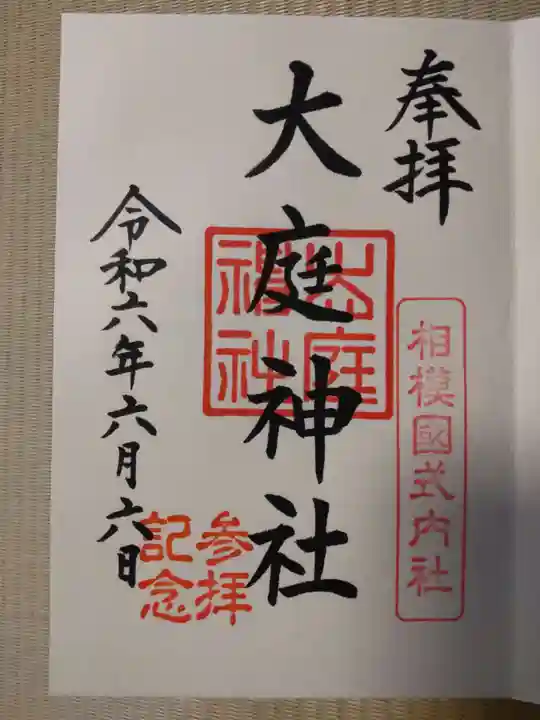 奉拝
相模國式内社
大庭神社
大庭
神社
参拝
記念
令和六年六月六日